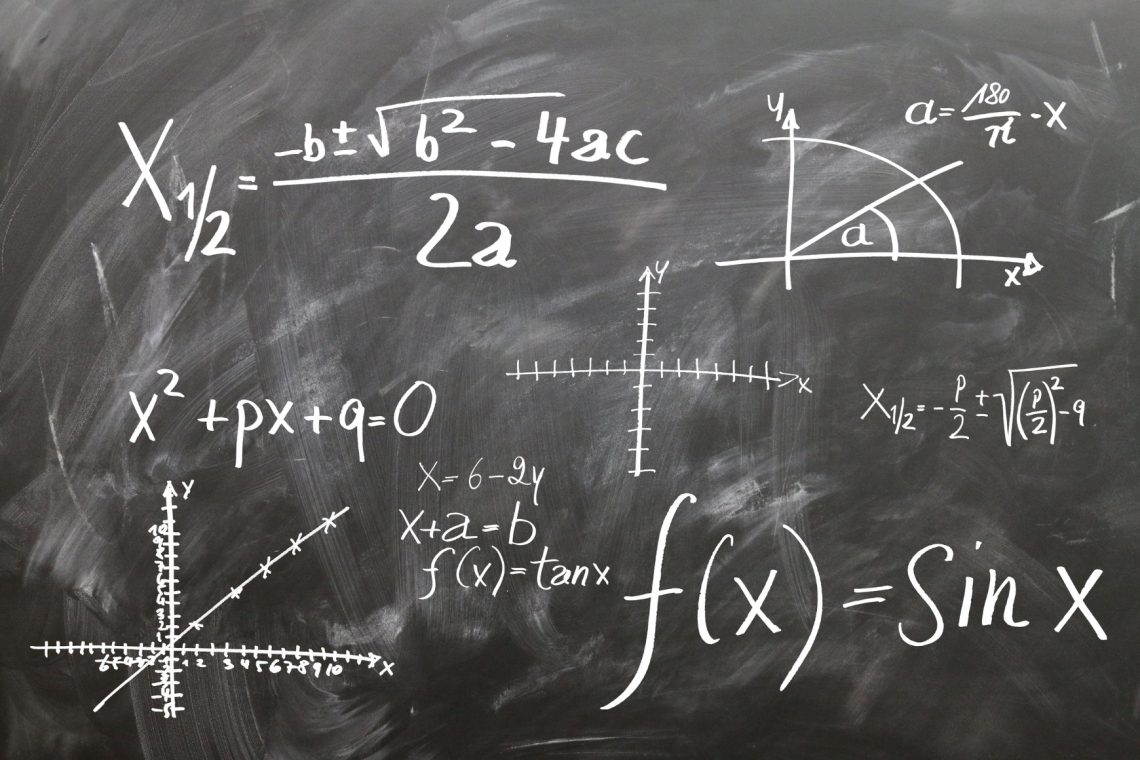 X1/2 = -b±√b² - 4ac / 2a
y
a = 180/π · x
a
x
y
x
x² + px + q = 0
X1/2 = - p/2 ± √(p/2)² - q
x = 6 - 2y
x + a = b
f(x) = tan x
f(x) = Sin x
y
10
1 2 3 4 5 6 7 8 9 10
x